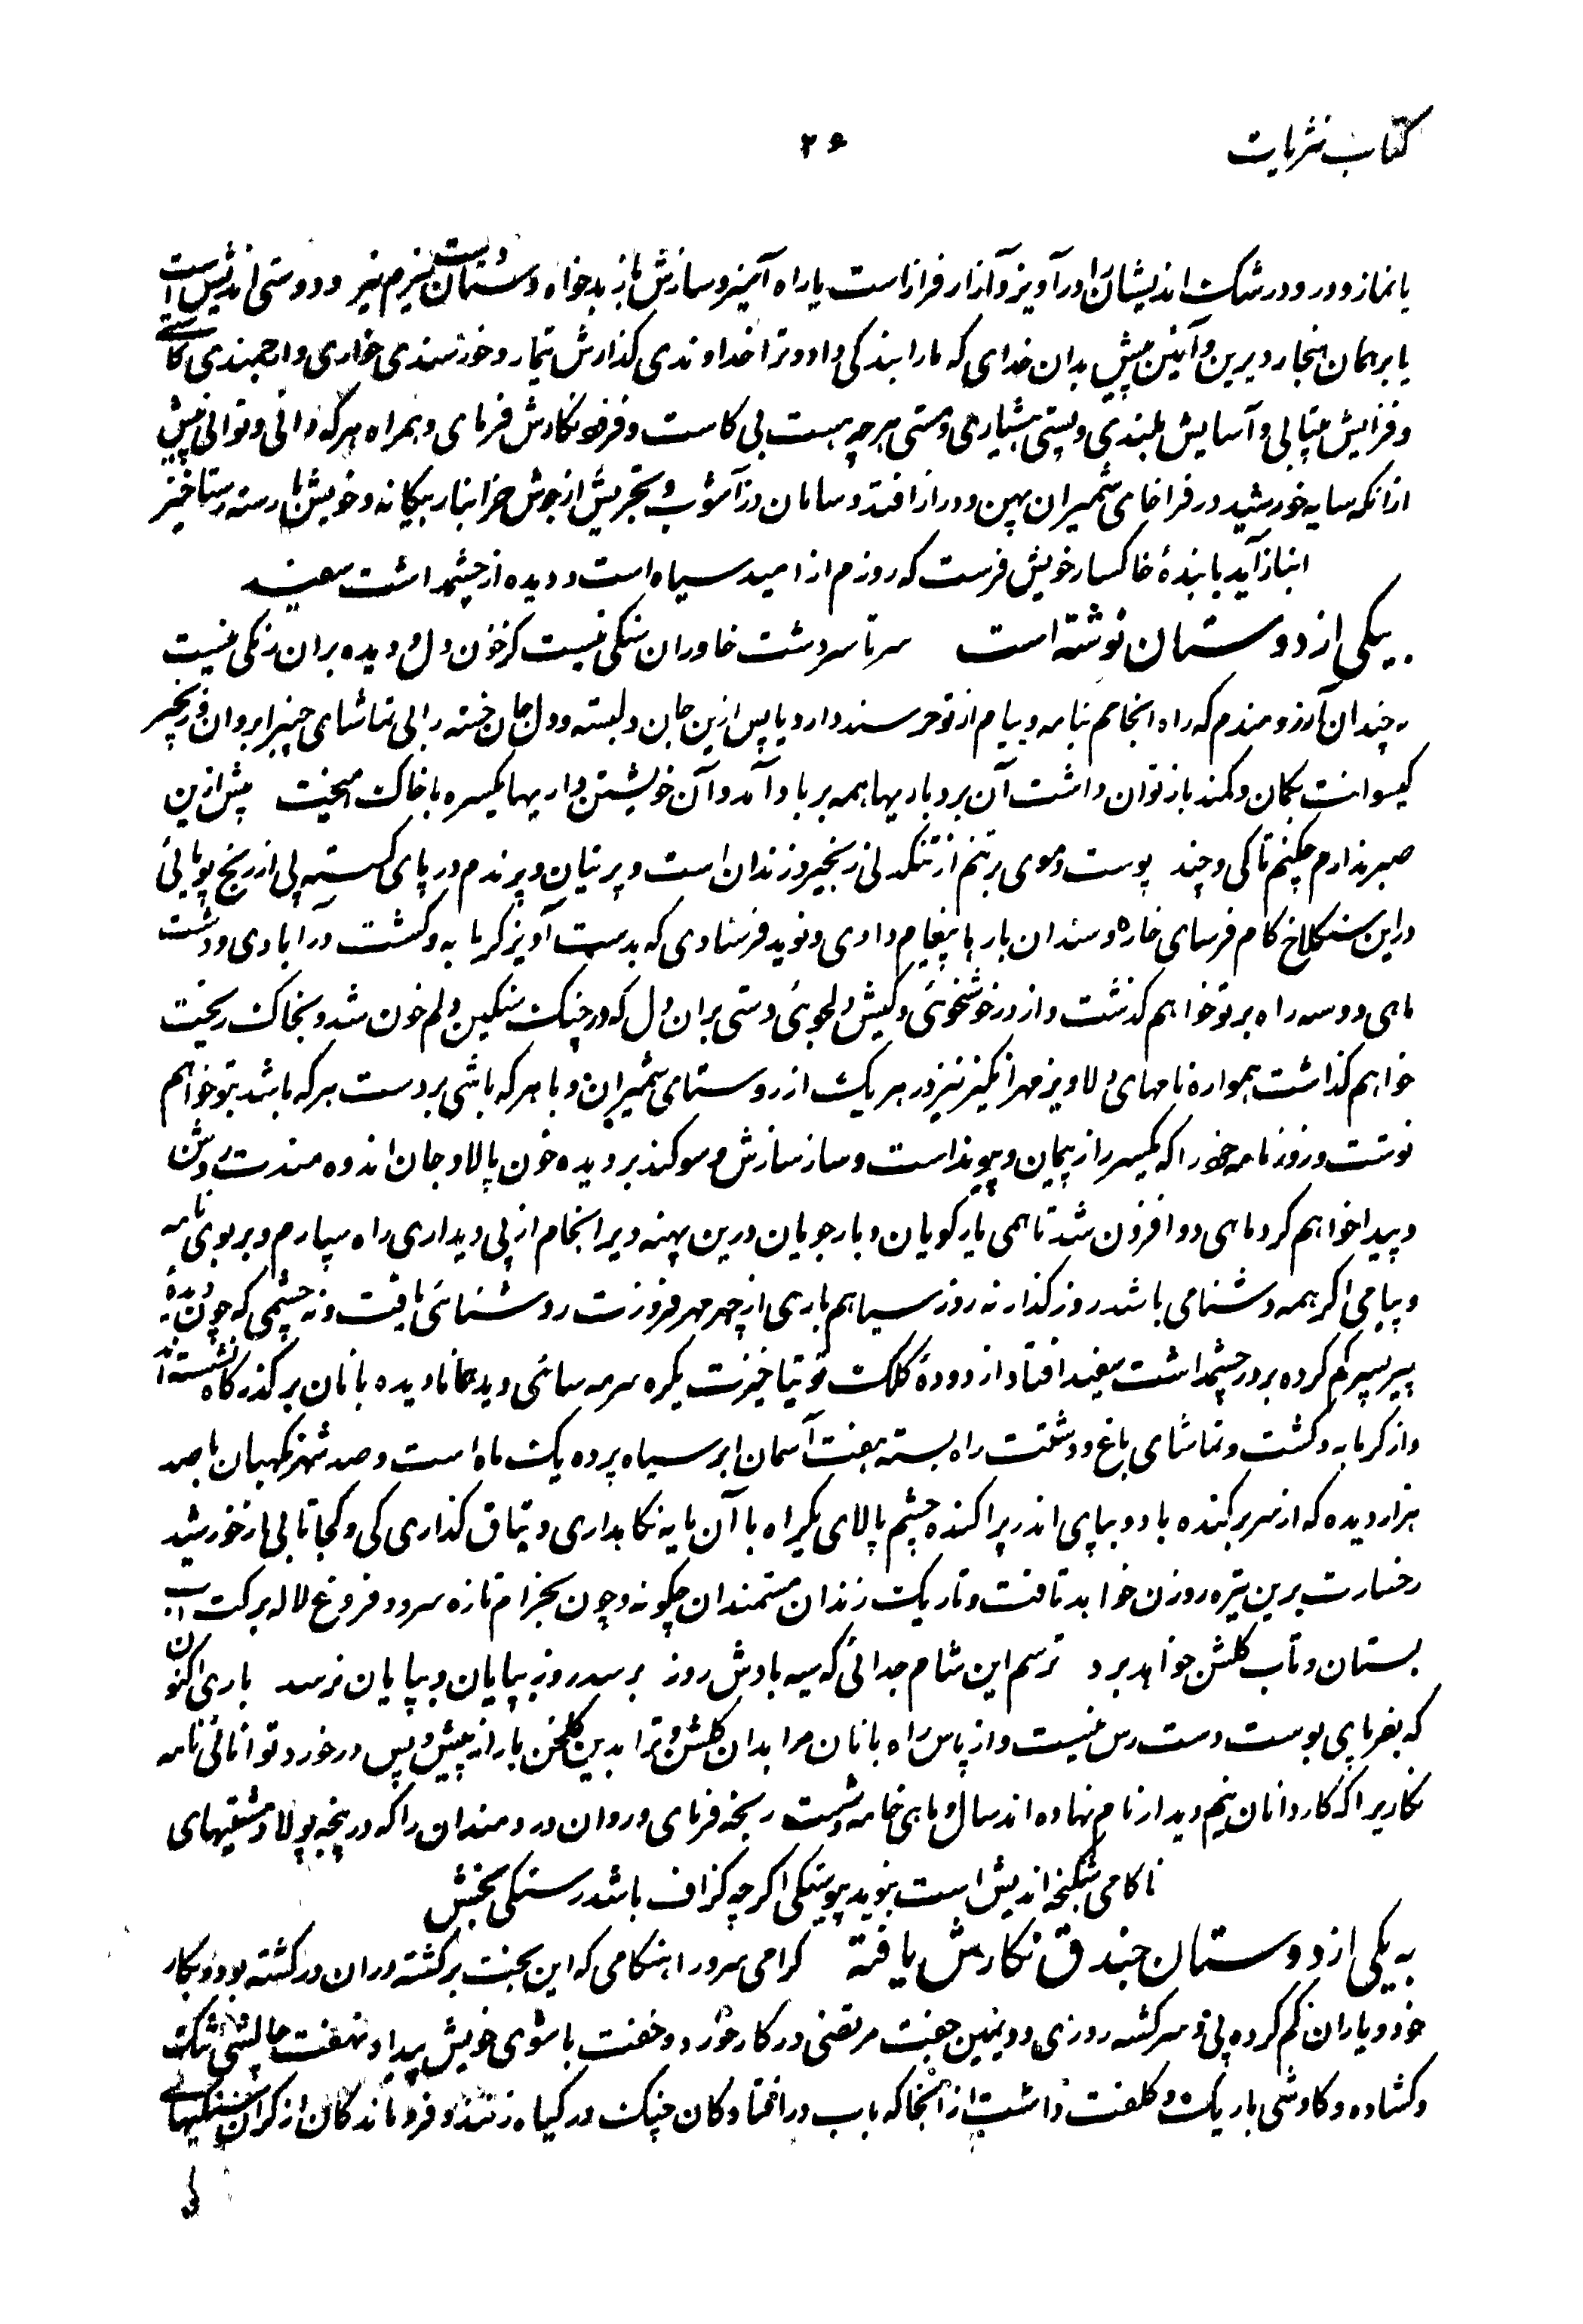 کتاب نثریات
۲۶
یا نماز و درود و رشک اندیشان را درآویز و آزار فراز است یا راه آمیز و سازش باز بدخواه و دشمنان دست نیزم نیز و دوستی اندیش است
یا بر همان هنجار دیرین و آئین پیش بدان خدای که ما را بندگی داد و ترا خداوندی گذارش تیمار و خورسندی خواری و ارجمندی کاستی
و فزایش بیتابی و آسایش بلندی و پستی هشیاری و مستی هر چه هست بی کاست و فزود نگارش فرمای و همراه هر که دانی و توانی پیش
از آنکه سایه خورشید در فراخای شمیران پهن و دراز افتد و سامان در آشوب و تجریش از جوش خر انبار بیگانه و خویش با رسته رستاخیز
انباز آید با بنده خاکسار خویش فرست که روزم از امید سیاه است و دیده از چشمداشت سفید
بیکی از دوستان نوشته است سرتاسر دشت خاوران سنگی نیست کز خون دل و دیده بر آن رنگی نیست
نه چندان آرزومندم که راه انجامم بنامه و پیام از تو خرسند دارد یا پس ازین جان دلبسته و دل جان خسته را بی تماشای چنبر ابروان و زنجیر
گیسوانت بکمان و کمند باز توان داشت آن بردباریها همه بر باد آمد و آن خویشتن داریها یکسره با خاک آمیخت بیش ازین
صبر ندارم چکنم تا کی و چند پوست و موی بر تنم از تنگدلی زنجیر و زندان است و پرنیان و پرندم در پای گسسته پی از رنج پویائی
در این سنگلاخ گام فرسای خاره و سندان بارها پیغام دادی و نوید فرستادی که بدست آویز گرمابه و گشت در آبادی و دشت
ماهی دو سه راه بر تو خواهم گذشت و از در خوشخوئی و کیش دلجوئی دستی بر آن دل که در چنگ سنگین دلم خون شد و بخاک ریخت
خواهم گذاشت همواره نامهای دلاویز مهرانگیز نیز در هر یک از روستای شمیران و با هر که باشی بر دست هر که باشد بتو خواهم
نوشت و روزنامه خود را که یکسر راز پیمان و پیوند است و ساز سازش و سوگند بر دیده خون پالا و جان اندوه مندت روشن
و پیدا خواهم کرد ماهی دو افزون شد تا همی یار گویان و بار جویان درین پهنه دیر انجام از پی دیداری راه سپارم و بر بوی نامه
و پیامی اگر همه دشنامی باشد روز گذار نه روز سیاهم باری از چهر مهر فروزت روشنائی یافت و نه چشمی که چون دیده
پیر پسر گم کرده بر در چشمداشت سفید افتاد از دوده کلک توتیا خیزت یکره سرمه سائی دید همانا دیده بانان بر گذرگاه نشسته‌اند
و از گرمابه و گشت و تماشای باغ و دشتت راه بسته هفت آسمان ابر سیاه پرده یک ماه است و صد شهر نگهبان با صد
هزار دیده که از سر بر کنده باد و بپای اندر پراکنده چشم پالای یکراه با آن پایه نگاهداری و یتاق گذاری کی و کجا تابی از خورشید
رخسارت برین تیره روزن خواهد تافت و تاریک زندان مستمندان چگونه و چون بخرام تازه سرو و فروغ لاله برگت آب
بستان و تاب گلشن خواهد برد ترسم این شام جدائی که سیه بادش روز برسد روز بپایان و بپایان نرسد باری اکنون
که بفر پای بوست دست رس نیست و از پاس راه بانان مرا بدان گلشن و ترا بدین گلخن یارانه پیش و پس در خورد توانائی نامه
نگار برا که کاردانان نیم دیدار نام نهاده‌اند سال و ماهی خامه و شست رنجه فرمای و روان دردمندان را که در پنجه پولاد مشتیهای
ناکامی شکنجه اندیش است بنوید پیوستگی اگر چه گزاف باشد رستگی بخش
به یکی از دوستان جندق نگارش یافته گرامی سرورا هنگامی که این بخت برگشته در آن در گشته بود و بکار
خود و یاران گم کرده پی و سرگشته روزی دو یمین جفت مرتضی در کار خورد و خفت با شوی خویش پیدا و نهفت چالشی تنگ
و گشاده و کاوشی باریک و کلفت داشت از آنجا که باب در افتادگان چنگ در گیاه زنند و فروماندگان از گران سنگیهای